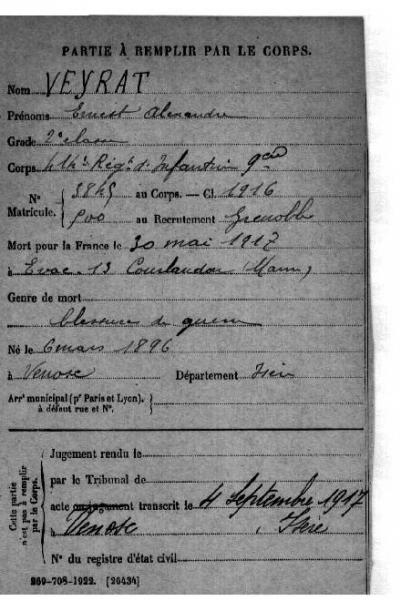 PARTIE À REMPLIR PAR LE CORPS.
Nom VEYRAT
Prénoms Ernest Alexandre
Grade 2e classe
Corps 4 Régt d'Infanterie 9 cie
N° Matricule. { 3845 au Corps. — Cl. 1916
900 au Recrutement Grenoble
Mort pour la France le 30 mai 1917
à Evac. 13 Courlandon (Marne)
Genre de mort
blessure de guerre
Né le 6 mars 1896
à Venosc Département Isère
Arr' municipal (pr Paris et Lyon),
à défaut rue et N°.
Cette partie n'est pas à remplir par le Corps.
Jugement rendu le
par le Tribunal de
acte ou jugement transcrit le 4 Septembre 1917
à Venosc, Isère
N° du registre d'état civil
269-708-1922. [26434]